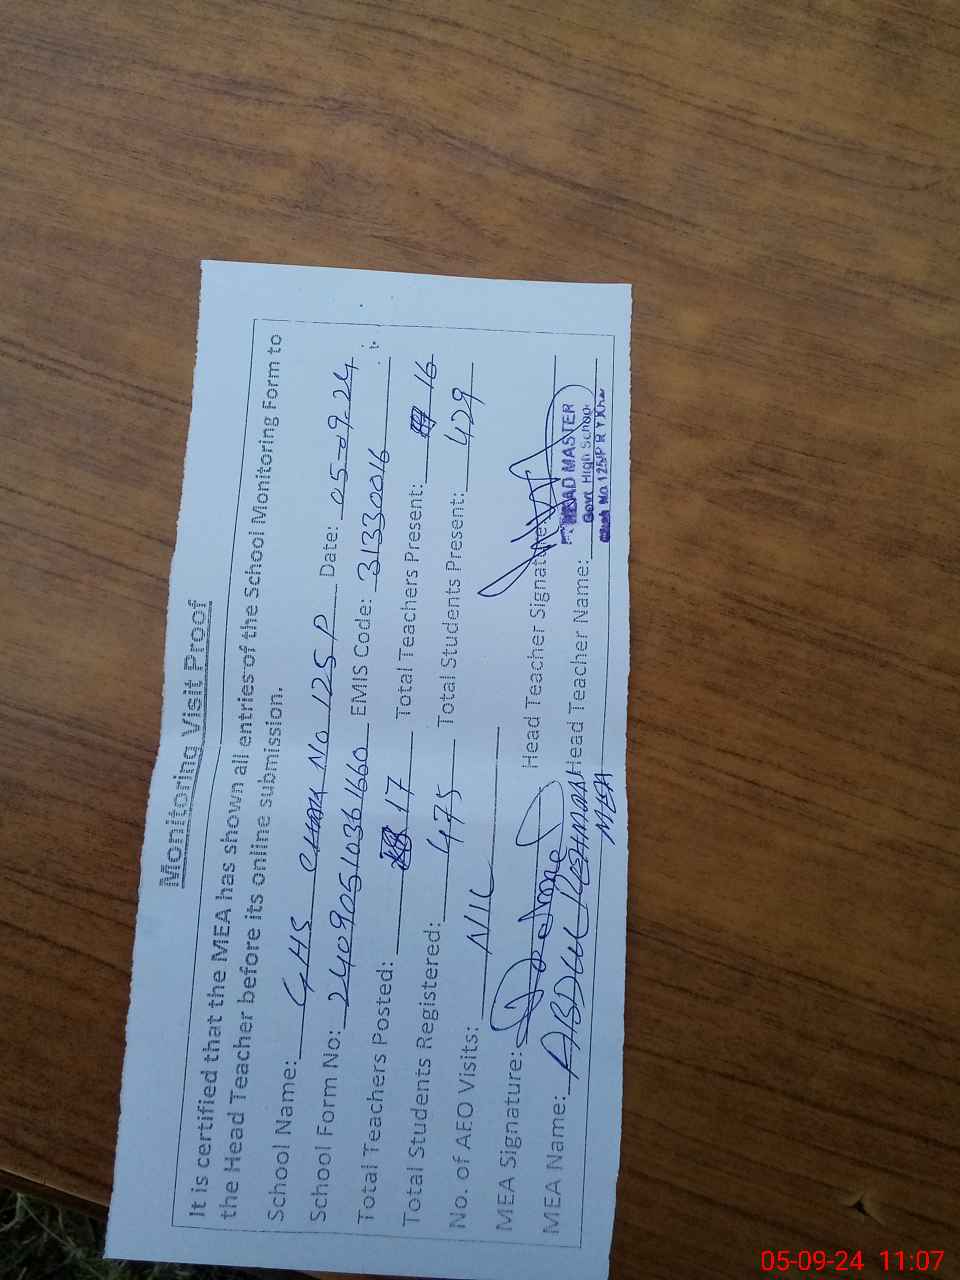 Monitoring Visit Proof
It is certified that the MEA has shown all entries of the School Monitoring Form to
the Head Teacher before its online submission.
School Name: GHS CHAK No 125 P Date: 05-09-24
School Form No: 24090510361660 EMIS Code: 31330016
Total Teachers Posted: 17 Total Teachers Present: 16
Total Students Registered: 475 Total Students Present: 429
No. of AEO Visits: NIL
MEA Signature: Head Teacher Signature:
HEAD MASTER
Govt. High School
Chak No. 125/P R Y Khan
MEA Name: ABDUL REHMAN Head Teacher Name:
MEA
05-09-24 11:07